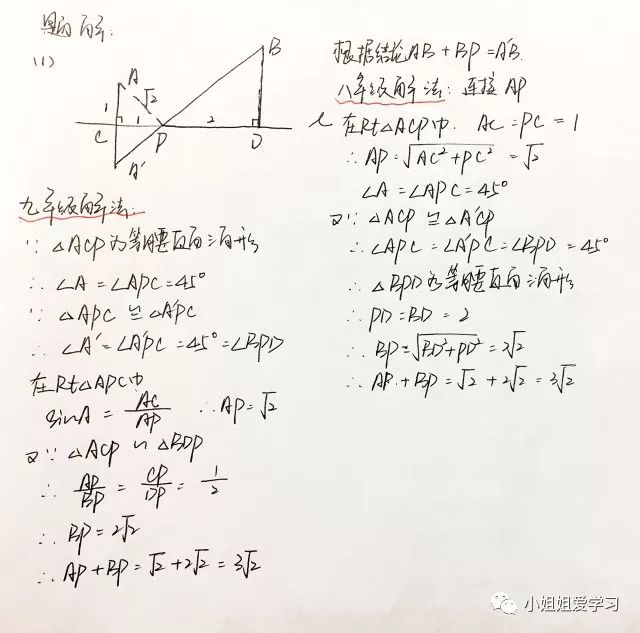 解:
(1)
A
B
1
√2
C
1
P
2
D
A'
九年级解法:
∵ △ACP为等腰直角三角形
∴ ∠A = ∠APC = 45°
∵ △APC ≌ △A'PC
∴ ∠A' = ∠A'PC = 45° = ∠BPD
在Rt△APC中
sinA = AC/AP ∴ AP = √2
又∵ △ACP ∽ △BDP
∴ AP/BP = CP/DP = 1/2
∴ BP = 2√2
∴ AP + BP = √2 + 2√2 = 3√2
根据结论AB + BP = A'B.
八年级解法: 连接AP
在Rt△ACP中. AC = PC = 1
∴ AP = √AC²+PC² = √2
∠A = ∠APC = 45°
又∵ △ACP ≌ △A'CP
∴ ∠APC = ∠A'PC = ∠BPD = 45°
∴ △BPD为等腰直角三角形
∴ PD = BD = 2
∴ BP = √BD²+PD² = 2√2
∴ AP + BP = √2 + 2√2 = 3√2
小姐姐爱学习